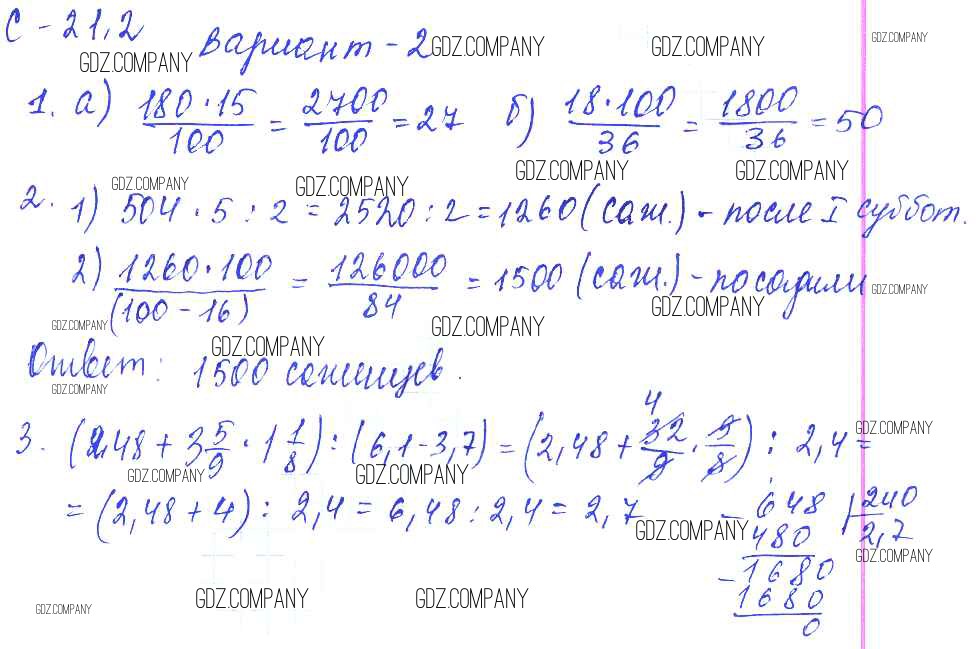 С - 21,2
Вариант - 2 GDZ.COMPANY GDZ.COMPANY GDZ.COMPANY
GDZ.COMPANY
1. а) 180·15/100 = 2700/100 = 27 б) 18·100/36 = 1800/36 = 50
GDZ.COMPANY GDZ.COMPANY
GDZ.COMPANY GDZ.COMPANY
2. 1) 504·5:2 = 2520:2 = 1260 (саж.) - после I суббот.
2) 1260·100/(100-16) = 126000/84 = 1500 (саж.) - посадили GDZ.COMPANY
GDZ.COMPANY
GDZ.COMPANY GDZ.COMPANY
GDZ.COMPANY
Ответ: 1500 саженцев.
GDZ.COMPANY
3. (2,48 + 3 5/9 · 1 1/8) : (6,1-3,7) = (2,48 + 32/9 · 9/8) : 2,4 =
4
GDZ.COMPANY
GDZ.COMPANY GDZ.COMPANY
= (2,48 + 4) : 2,4 = 6,48 : 2,4 = 2,7
GDZ.COMPANY
- 648 | 240
480 2,7
GDZ.COMPANY
- 1680
1680
0
GDZ.COMPANY GDZ.COMPANY GDZ.COMPANY